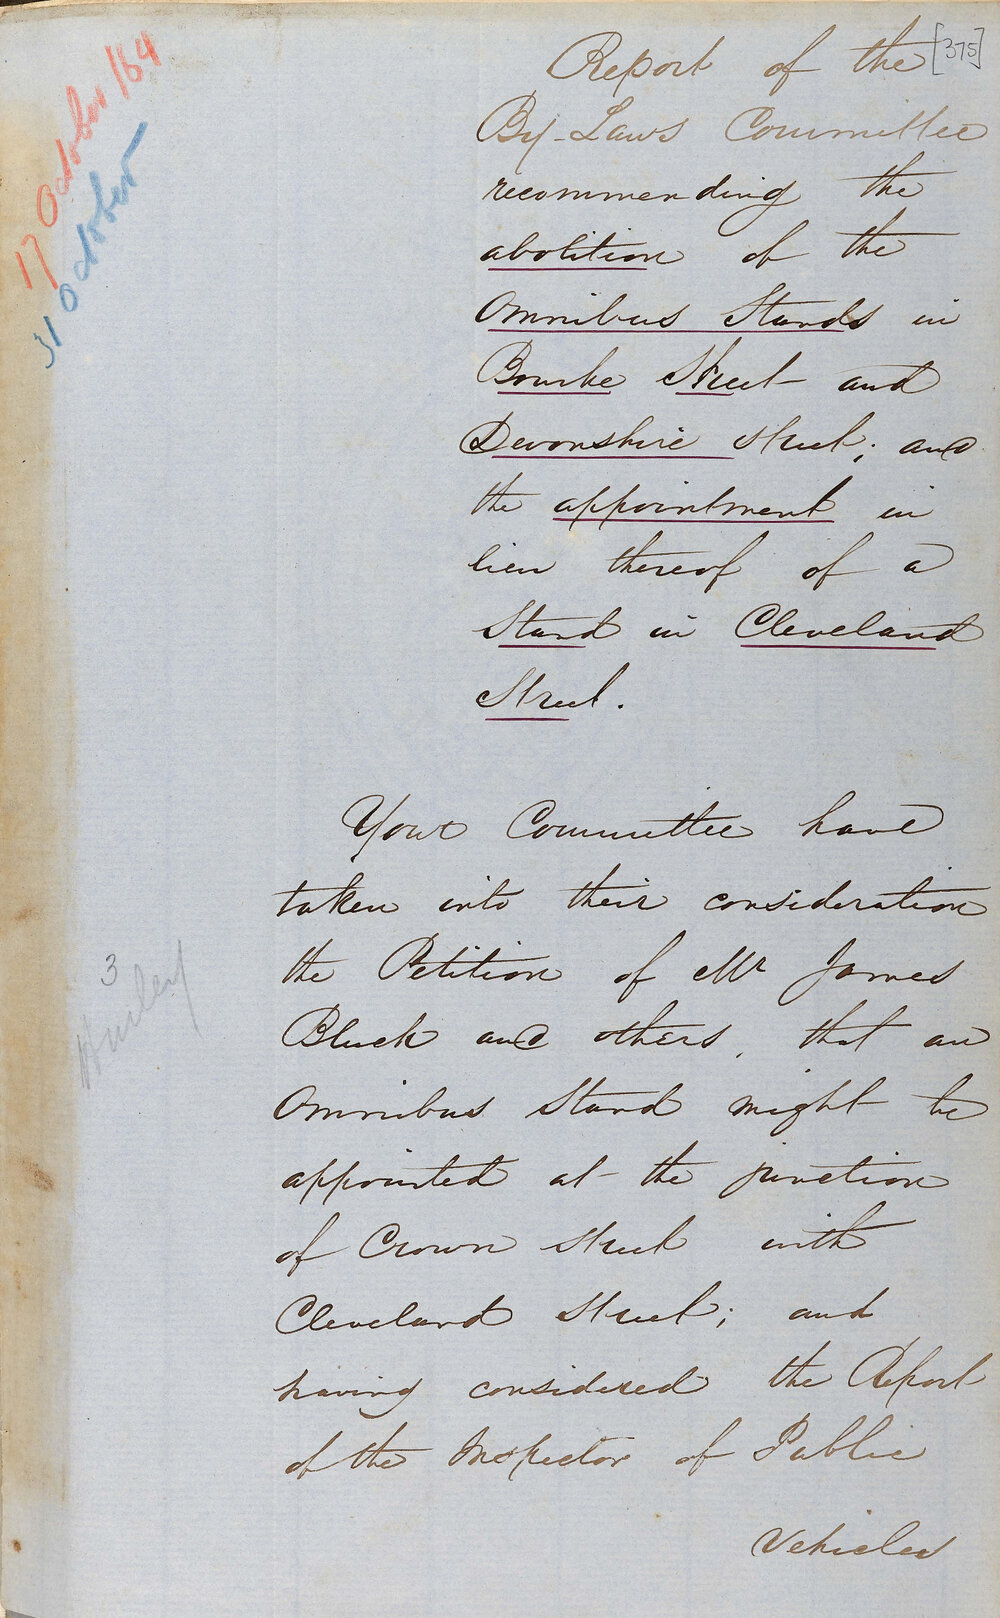 [375]
17 October 164
31 October
Report of the
By-Laws Committee
recommending the
abolition of the
Omnibus Stands in
Bourke Street and
Devonshire Street; and
the appointment in
lieu thereof of a
Stand in Cleveland
Street.
Your Committee have
taken into their consideration
the Petition of Mr James
Black and others, that an
Omnibus Stand might be
appointed at the junction
of Crown Street with
Cleveland Street; and
having considered the Report
of the Inspector of Public
Vehicles
3
Hurley